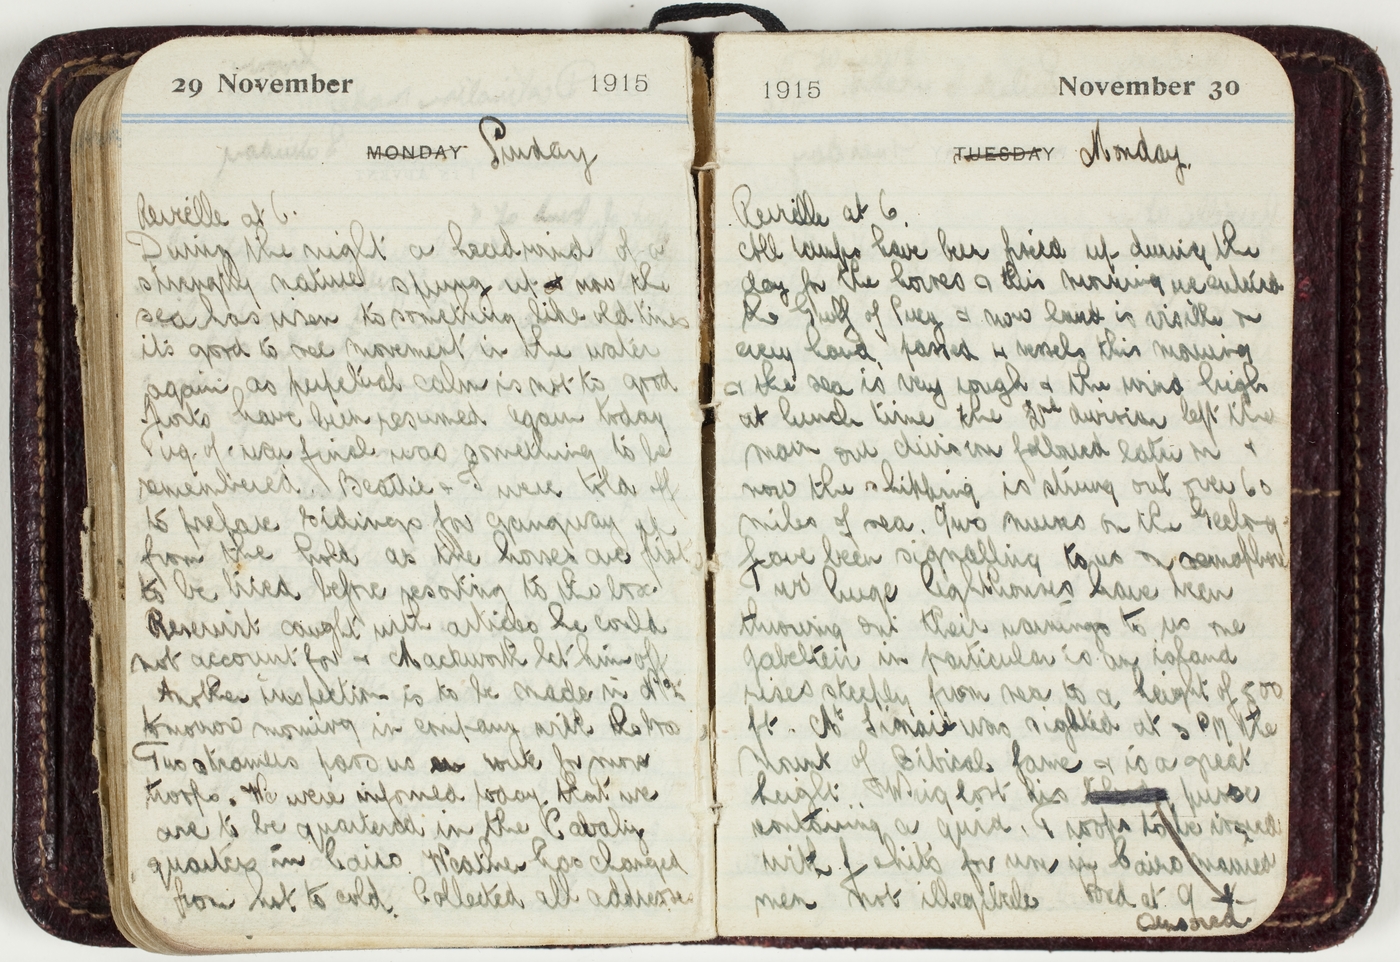 29 November 1915
MONDAY Sunday
Reveille at 6.
During the night a headwind of a
strongly nature sprung up & now the
sea has risen to something like old times
its good to see movement in the water
again as perpetual calm is not to good
have been resumed again today
Tug of war final was something to be
remembered. Beattie & I were told off
to prepare tidings for gangway up
from the hold as the horses are first
to be tried before resorting to the box.
caught with articles he could
not account for & Mackworth let him off
Another inspection is to be made in No 2
tomorrow morning in company with the
Two steamers pass us with for more
troops. We were informed today that we
are to be quartered in the Cavalry
quarters in Cairo. Weather has changed
from hot to cold. Collected all addresses
1915 November 30
TUESDAY Monday.
Reveille at 6.
All lamps have been fixed up during the
day for the horses & this morning we entered
the Gulf of Suez & now land is visible on
every hand, passed 4 vessels this morning
& the sea is very rough & the wind high
at lunch time the 3rd division left the
main our division followed later on &
now the shipping is strung out over 60
miles of sea. Two nurses on the Geelong
have been signalling to us on semaphore
Two huge lighthouses have been
throwing out their warnings to us one
in particular is an island
rises steeply from sea to a height of 500
ft. Mt Sinaii was sighted at 5 PM the
Mount of Biblical fame & is a great
height. lost his purse
containing a quid. Troops to be issued
with for use in Cairo married
men not illegible Bed at 9
censored